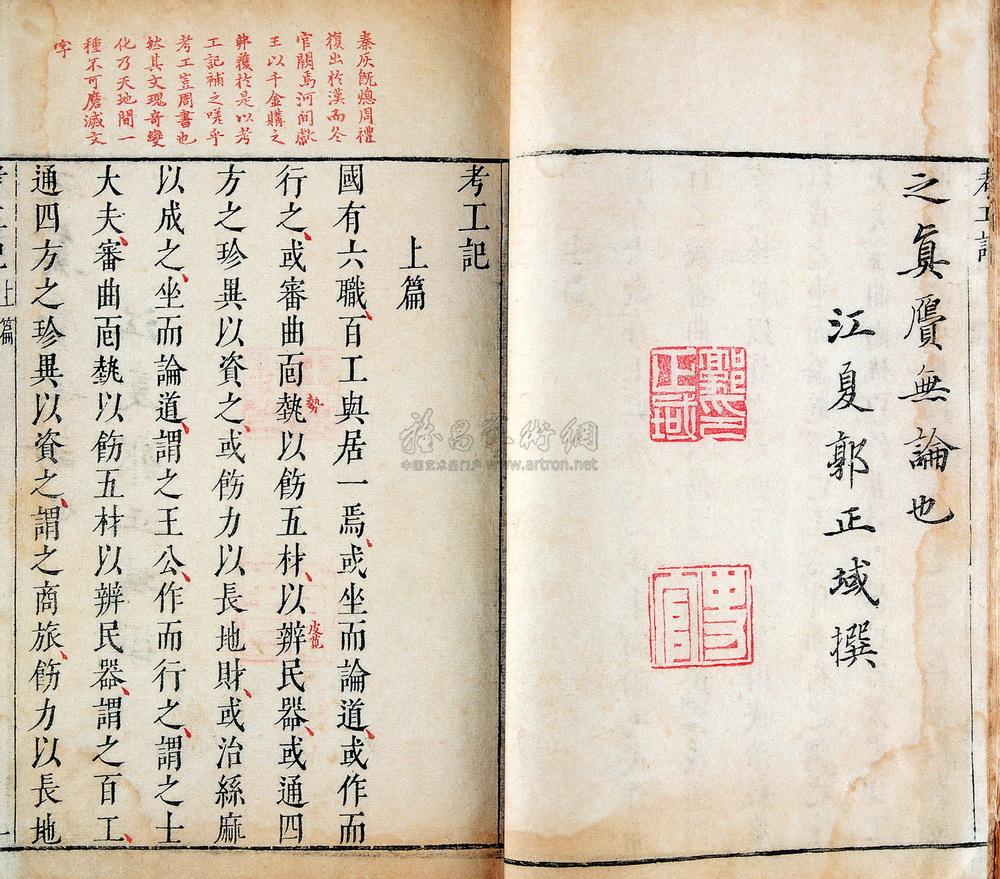 考工記
之眞贋無論也
江夏郭正域撰
秦灰既熄周禮
復出於漢而冬
官闕焉河間獻
王以千金購之
弗獲於是以考
工記補之嗟乎
考工豈周書也
然其文瑰奇變
化乃天地間一
種不可磨滅文
字
考工記
上篇
國有六職百工與居一焉或坐而論道或作而
行之或審曲面埶以飭五材以辨民器或通四
勢
皮莧
方之珍異以資之或飭力以長地財或治絲麻
以成之坐而論道謂之王公作而行之謂之士
大夫審曲面埶以飭五材以辨民器謂之百工
通四方之珍異以資之謂之商旅飭力以長地
考工記上篇
一
雅昌艺术網
中国艺术品门户 www.artron.net